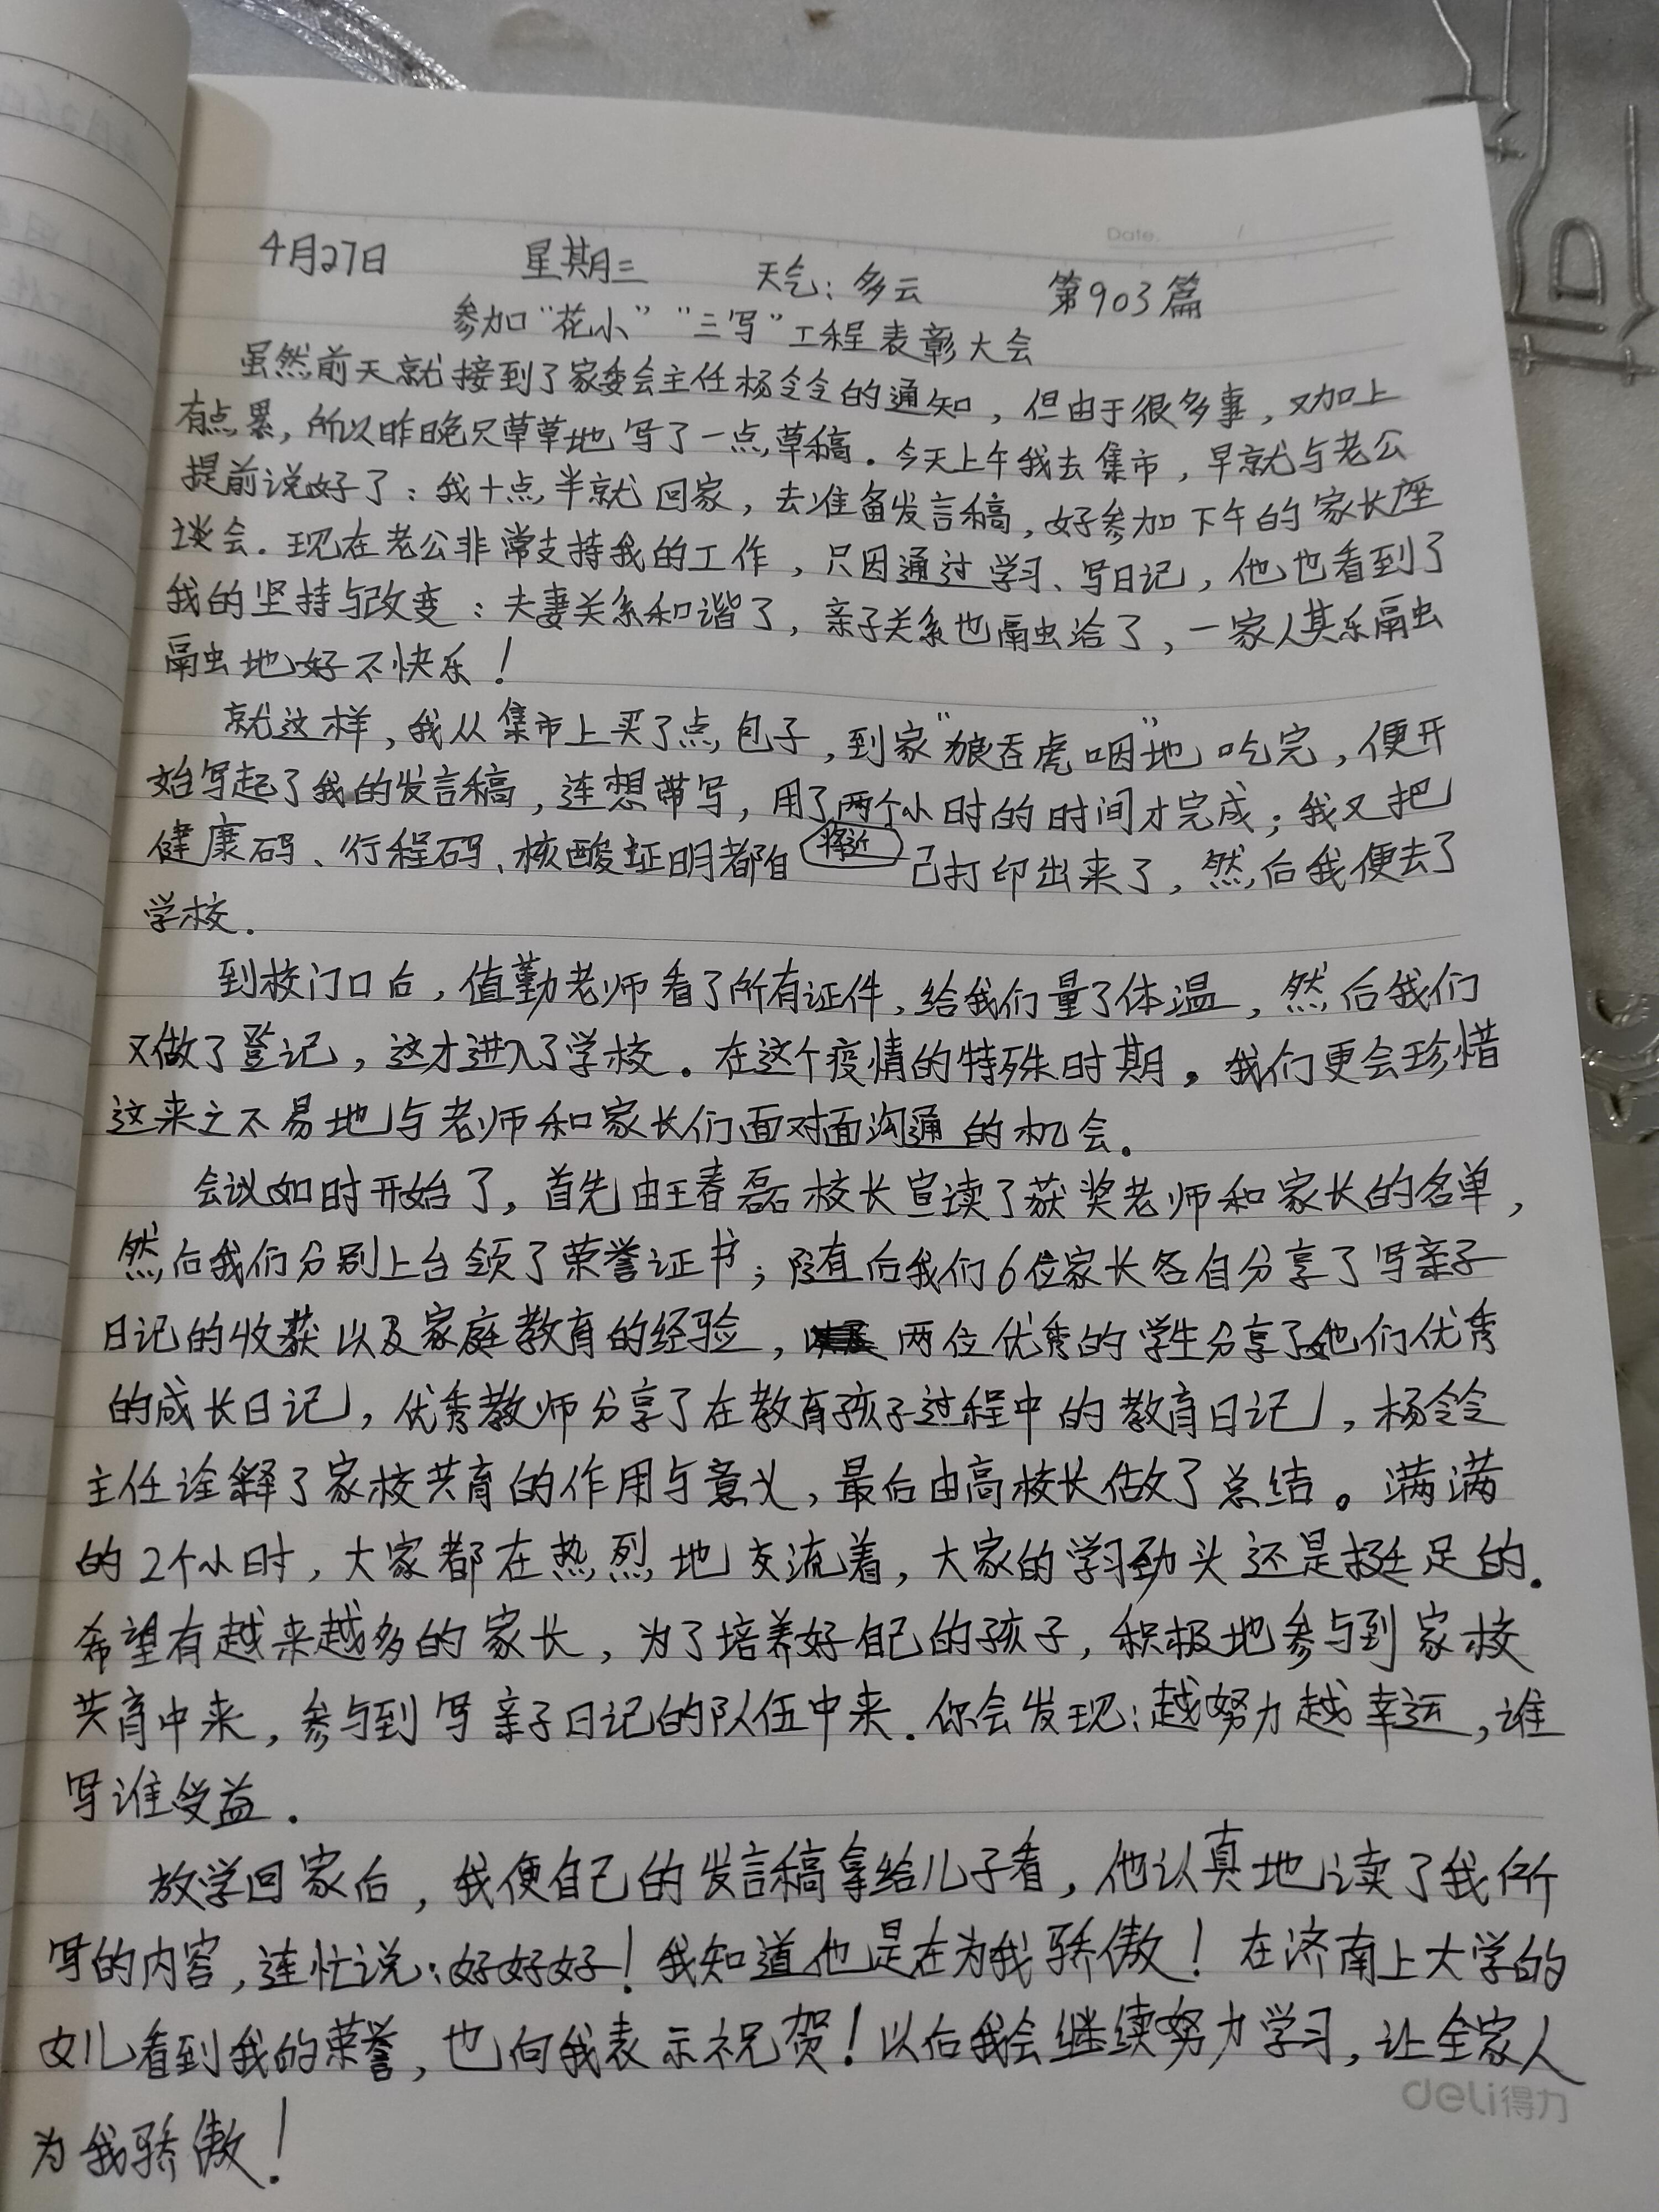 Date. /
4月27日 星期三 天气：多云 第903篇
参加“花小”“三写”工程表彰大会
虽然前天就接到了家委会主任杨令令的通知，但由于很多事，又加上
有点累，所以昨晚只草草地写了一点草稿。今天上午我去集市，早就与老公
提前说好了：我十点半就回家，去准备发言稿，好参加下午的家长座
谈会．现在老公非常支持我的工作，只因通过学习、写日记，他也看到了
我的坚持与改变：夫妻关系和谐了，亲子关系也融洽了，一家人其乐融
融地好不快乐！
就这样，我从集市上买了点包子，到家“狼吞虎咽”地吃完，便开
始写起了我的发言稿，连想带写，用了两个小时的时间才完成；我又把
健康码、行程码、核酸证明都自 将近 己打印出来了，然后我便去了
学校．
到校门口后，值勤老师看了所有证件，给我们量了体温，然后我们
又做了登记，这才进入了学校。在这个疫情的特殊时期，我们更会珍惜
这来之不易地与老师和家长们面对面沟通的机会。
会议如时开始了，首先由王春磊校长宣读了获奖老师和家长的名单，
然后我们分别上台领了荣誉证书；随后我们6位家长各自分享了写亲子
日记的收获以及家庭教育的经验，两位优秀的学生分享了他们优秀
的成长日记，优秀教师分享了在教育孩子过程中的教育日记，杨令令
主任诠释了家校共育的作用与意义，最后由高校长做了总结。满满
的2个小时，大家都在热烈地交流着，大家的学习劲头还是挺足的．
希望有越来越多的家长，为了培养好自己的孩子，积极地参与到家校
共育中来，参与到写亲子日记的队伍中来．你会发现：越努力越幸运，谁
写谁受益．
放学回家后，我便自己的发言稿拿给儿子看，他认真地读了我所
写的内容，连忙说：好好好！我知道他是在为我骄傲！在济南上大学的
女儿看到我的荣誉，也向我表示祝贺！以后我会继续努力学习，让全家人
为我骄傲！
deli得力